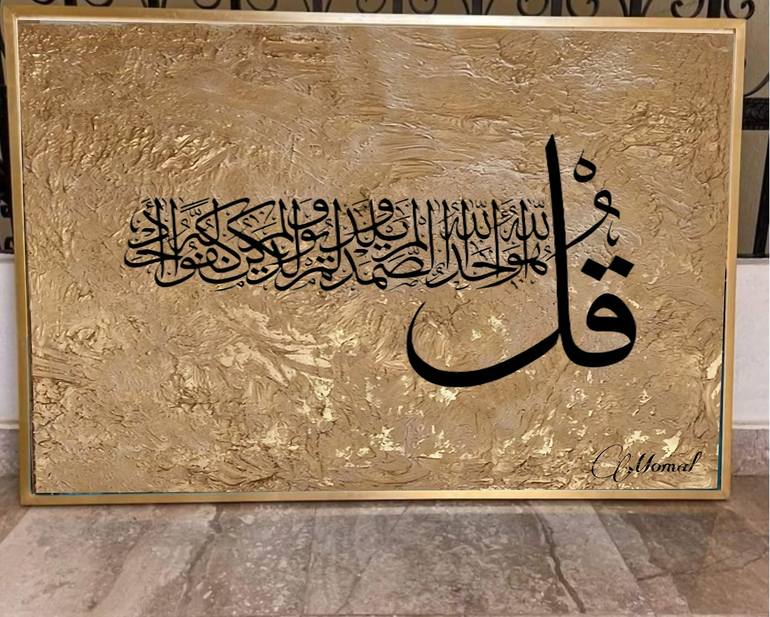 قُل هو الله أحد الله الصمد لم يلد ولم يولد ولم يكن له كفوا أحد
Momal